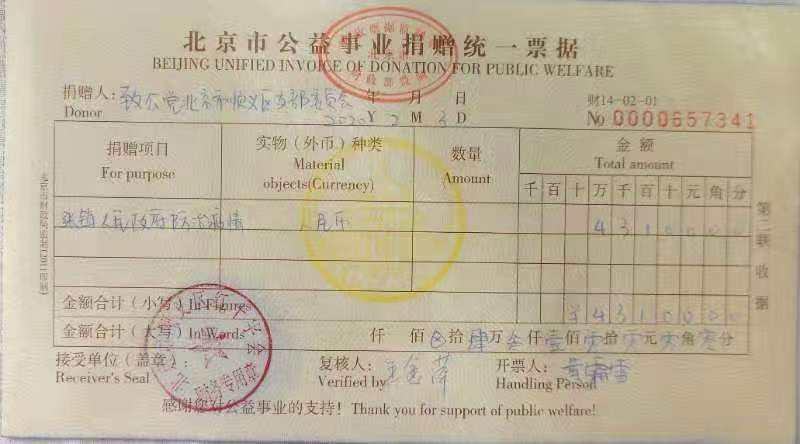 北京市公益事业捐赠统一票据
BEIJING UNIFIED INVOICE OF DONATION FOR PUBLIC WELFARE
捐赠人: 致公党北京市顺义区支部委员会 年 月 日 财14-02-01
Donor 2020 Y 2 M 3 D No 0000657341
捐赠项目 实物（外币）种类 数量 金额
For purpose Material objects(Currency) Amount Total amount
千 百 十 万 千 百 十 元 角 分
张镇人民政府防治疫情 人民币 4 3 1 0 0 0 0
金额合计（小写）In Figures ¥ 4 3 1 0 0 0 0
金额合计（大写）In Words 仟 佰 拾 肆 万 仟 壹 佰 零 拾 零 元 零 角 零 分
接受单位（盖章）: 复核人: 开票人:
Receiver's Seal Verified by Handling Person
感谢您对公益事业的支持！Thank you for support of public welfare!
第二联 收据
北京市财政局监制
财务专用章